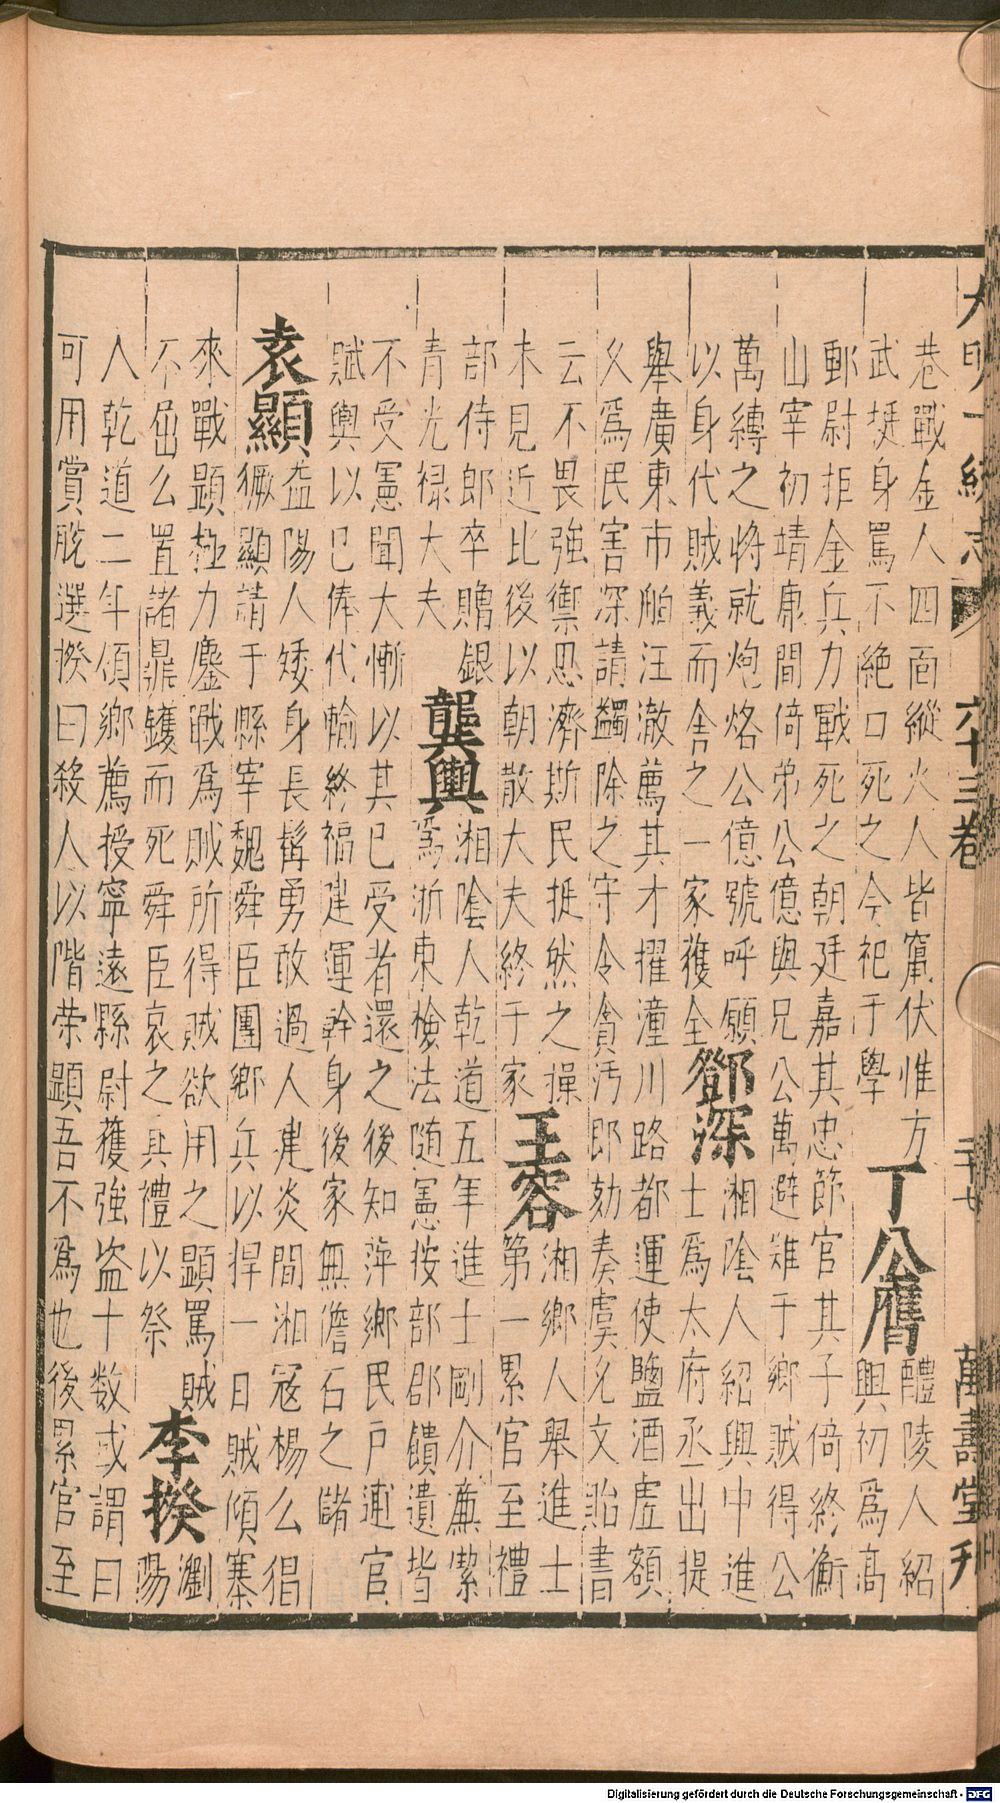 大明一統志 六十三卷 二十七 萬壽堂刊
巷戰金人四面縱火人皆竄伏惟方
武挺身罵不絕口死之今祀于學
丁公膺
醴陵人紹
興初為高
郵尉拒金兵力戰死之朝廷嘉其忠節官其子倚終衡
山宰初靖康間倚弟公億與兄公萬避難于鄉賊得公
萬縛之將就炮烙公億號呼願
以身代賊義而舍之一家獲全
鄧深
湘陰人紹興中進
士為太府丞出提
舉廣東市舶汪澈薦其才擢潼川路都運使鹽酒虛額
久為民害深請蠲除之守令貪汚即劾奏虞允文貽書
云不畏強禦思濟斯民挺然之操
未見近比後以朝散大夫終于家
王容
湘鄉人舉進士
第一累官至禮
部侍郎卒贈銀
青光祿大夫
龔輿
湘陰人乾道五年進士剛介蕪潔
為浙東檢法隨憲按部郡饋遺皆
不受憲聞大慚以其已受者還之後知萍鄉民戶逋官
賦輿以已俸代輸終福建運幹身後家無儋石之儲
袁顯
益陽人矮身長髯勇敢過人建炎間湘冦楊么猖
獗顯請于縣宰魏舜臣團鄉兵以捍一日賊傾寨
來戰顯極力鏖戰為賊所得賊欲用之顯罵賊
不屈么置諸鼎鑊而死舜臣哀之具禮以祭
李揆
瀏
陽
人乾道二年領鄉薦授寧遠縣尉獲強盜十數或謂曰
可用賞脫選揆曰殺人以階榮顯吾不為也後累官至
Digitalisierung gefördert durch die Deutsche Forschungsgemeinschaft - DFG